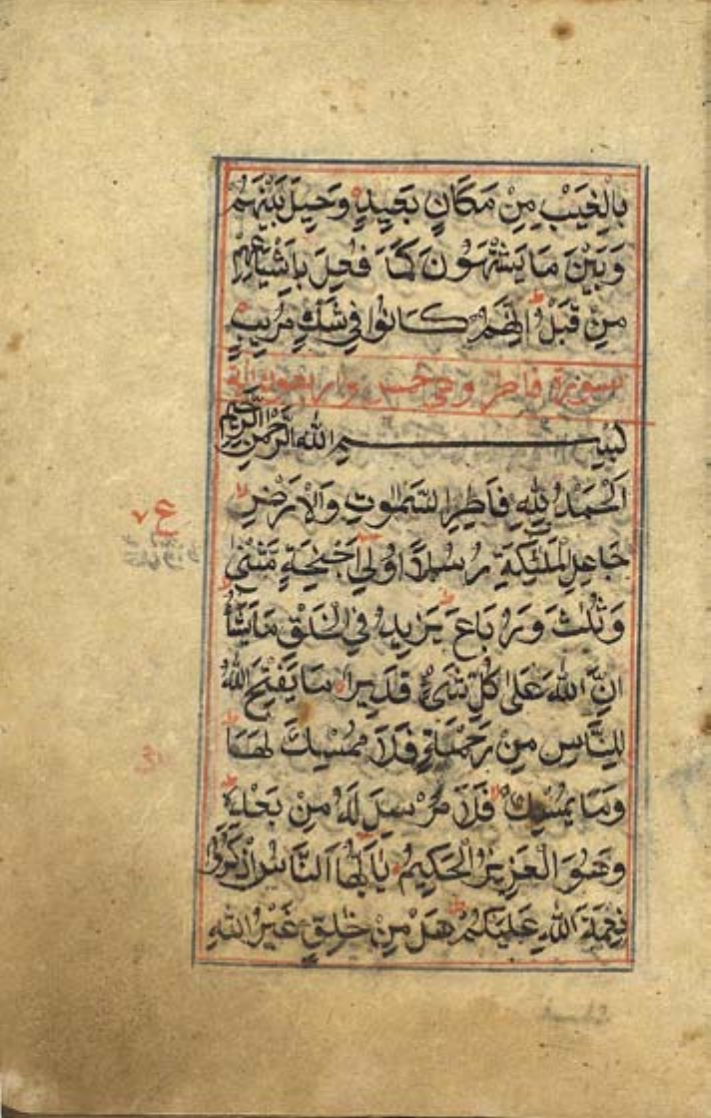 بِالْغَيْبِ مِنْ مَكَانٍ بَعِيدٍ وَحِيلَ بَيْنَهُمْ
وَبَيْنَ مَا يَشْتَهُونَ كَمَا فُعِلَ بِاَشْيَاعِهِمْ
مِنْ قَبْلُ اِنَّهُمْ كَانُوا فِي شَكٍّ مُرِيبٍ
سورة فاطر وهي خمس واربعون اية
بسم الله الرحمن الرحيم
اَلْحَمْدُ لِلّٰهِ فَاطِرِ السَّمٰوٰتِ وَالْاَرْضِ
جَاعِلِ الْمَلٰئِكَةِ رُسُلًا اُولِي اَجْنِحَةٍ مَثْنٰى
وَثُلٰثَ وَرُبَاعَ يَزِيدُ فِي الْخَلْقِ مَا يَشَآءُ
اِنَّ اللهَ عَلٰى كُلِّ شَىْءٍ قَدِيرٌ مَا يَفْتَحِ اللهُ
لِلنَّاسِ مِنْ رَحْمَةٍ فَلَا مُمْسِكَ لَهَا
وَمَا يُمْسِكْ فَلَا مُرْسِلَ لَهُ مِنْ بَعْدِهٖ
وَهُوَ الْعَزِيزُ الْحَكِيمُ يٰاَيُّهَا النَّاسُ اذْكُرُوا
نِعْمَةَ اللهِ عَلَيْكُمْ هَلْ مِنْ خَالِقٍ غَيْرُ اللهِ
ع ٧